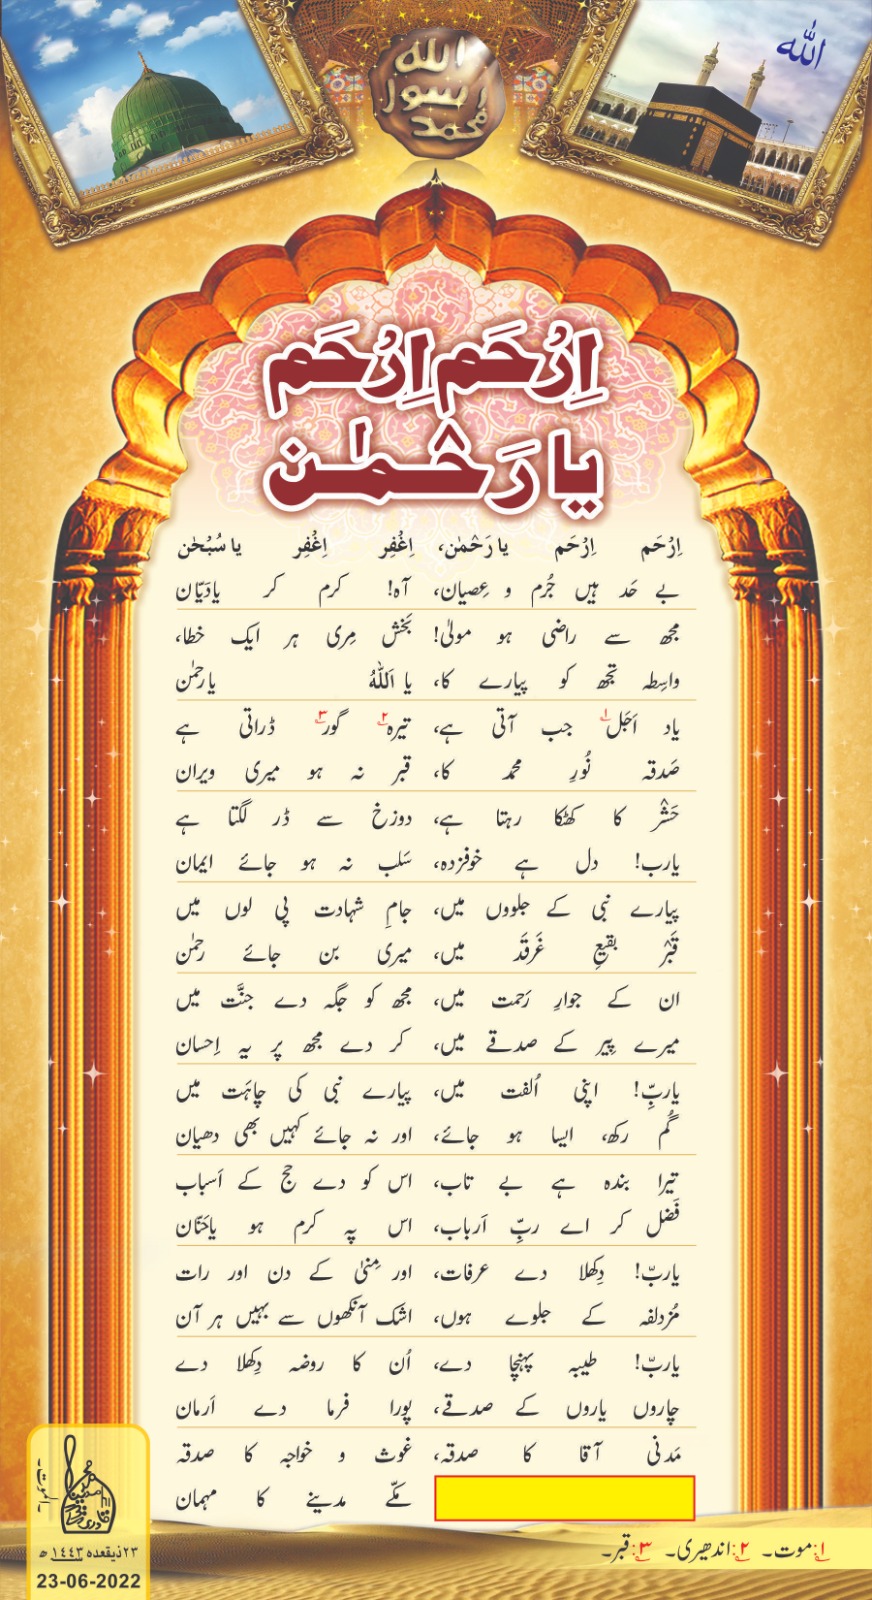 الله
الله
رسول
محمد
اِرْحَم اِرْحَم
یا رَحْمٰن
اِرْحَم اِرْحَم یا رَحْمٰن، اِغْفِر اِغْفِر یا سُبْحٰن
بے حَد ہیں جُرم و عِصیان، آہ! کرم کر یادَیّان
مجھ سے راضی ہو مولیٰ! بَخْش مِری ہر ایک خطا،
واسِطہ تجھ کو پیارے کا، یا اَللہُ یا رحمٰن
یاد اَجَل۱ جب آتی ہے، تیرہ۲ گور۳ ڈراتی ہے
صَدقہ نُورِ محمد کا، قبر نہ ہو میری ویران
حَشْر کا کھٹکا رہتا ہے، دوزخ سے ڈر لگتا ہے
یارب! دل ہے خوفزدہ، سَلب نہ ہو جائے ایمان
پیارے نبی کے جلووں میں، جامِ شہادت پی لوں میں
قَبْر بقیعِ غَرقَد میں، میری بن جائے رحمٰن
ان کے جوارِ رَحمت میں، مجھ کو جگہ دے جنَّت میں
میرے پِیر کے صدقے میں، کر دے مجھ پر یہ اِحسان
یاربِّ! اپنی اُلفت میں، پیارے نبی کی چاہَت میں
گُم رکھ، ایسا ہو جائے، اور نہ جائے کہیں بھی دھیان
تیرا بندہ ہے بے تاب، اس کو دے حج کے اَسباب
فَضل کر اے ربِّ اَرباب، اس پہ کرم ہو یاحَنّان
یاربّ! دِکھلا دے عرفات، اور مِنیٰ کے دن اور رات
مُزدلفہ کے جلوے ہوں، اشک آنکھوں سے بہیں ہر آن
یاربّ! طیبہ پہنچا دے، اُن کا روضہ دِکھلا دے
چاروں یاروں کے صدقے، پورا فرما دے اَرمان
مَدنی آقا کا صدقہ، غوث و خواجہ کا صدقہ
مکّے مدینے کا مہمان
۱:موت۔ ۲:اندھیری۔ ۳:قبر۔
۲۳ ذیقعدہ ۱٤٤۳ ھ
23-06-2022